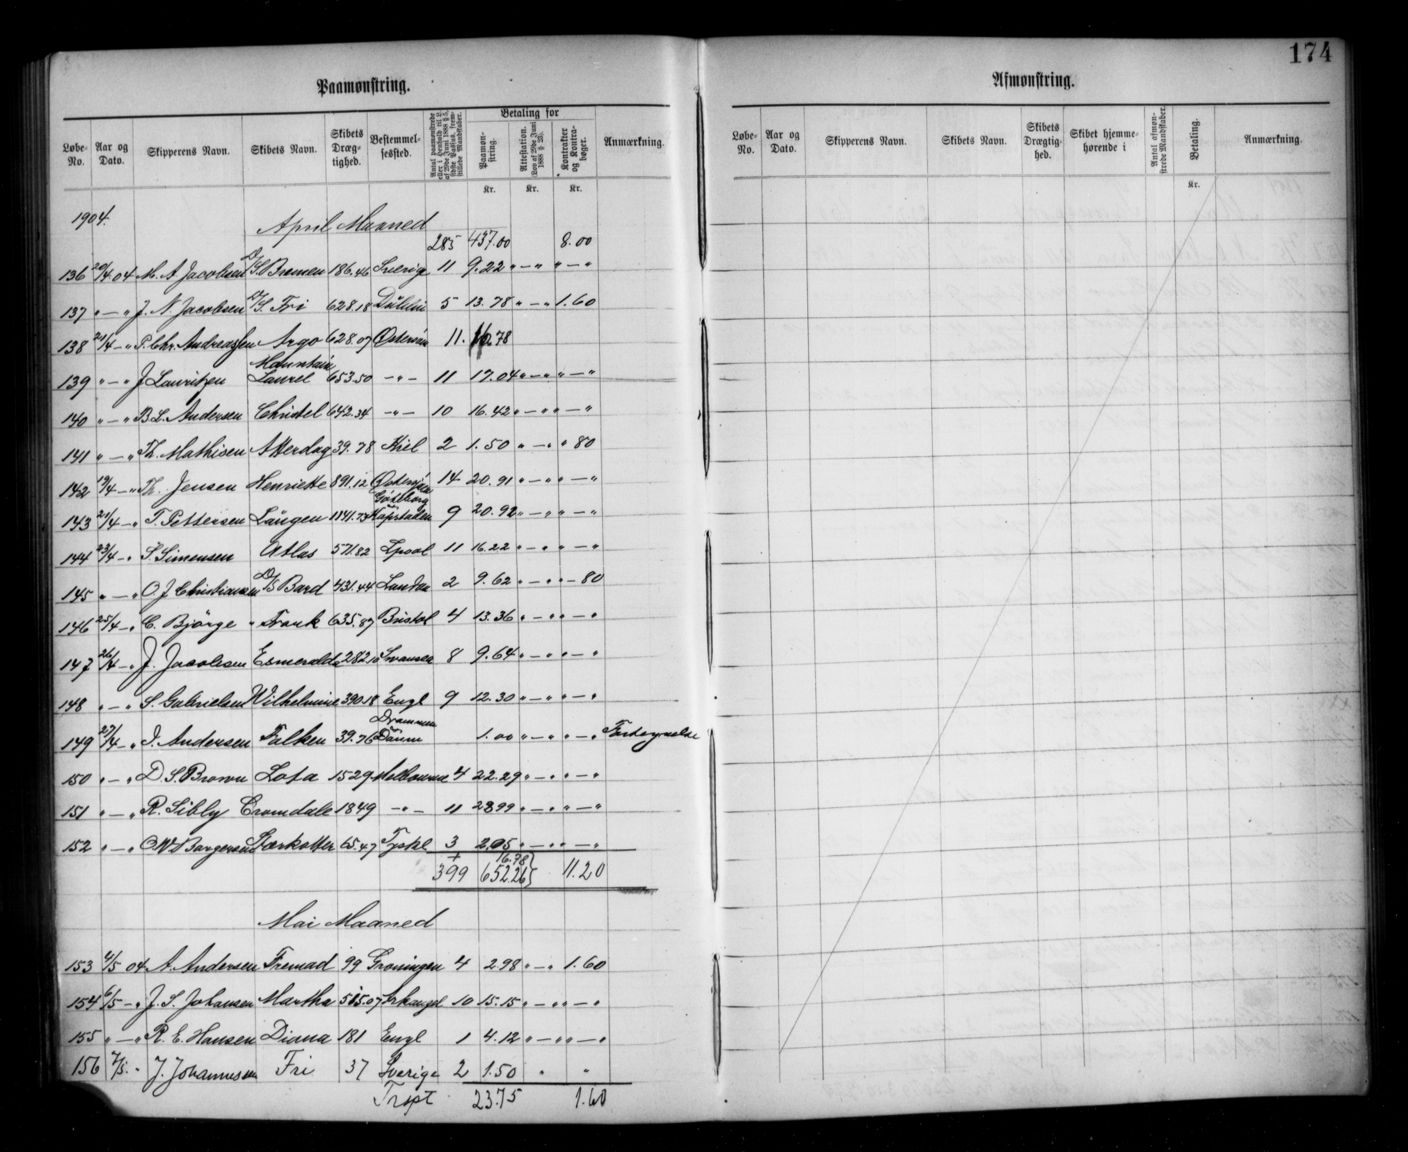 174
Paamonstring.
Løbe-No. Aar og Dato. Skipperens Navn. Skibets Navn. Skibets Dræg-tighed. Bestemmel-sessted. Betaling for Paamon-string. Attestation. Kontrakter og Kontra-bøger. Anmærkning.
Kr. Kr. Kr.
1904. April Maaned
285 437.00 8.00
136 20/4 04 M. A. Jacobsen D/S. Bremen 186.46 Sverige 11 9.22 " — " " — "
137 " — " J. N. Jacobsen D/S. Fri 628.18 5 13.78 " — " 1.60
138 21/4 — " P. Chr. Andreassen Argo 628.07 11. 10.78
139 " — " J Lauritzen Mountain Laurel 653.50 — " — 11 17.04 " — " " — "
140 " — " B. L. Andersen Christel 642.34 — " — 10 16.42 " — " " — "
141 " — " Th. Mathisen Atterdag 39.78 Kiel 2 1.50 " — " " 80
142 19/4 — " Th. Jensen Henriette 891.12 Østersjøen 14 20.91 " — " " — "
143 21/4 — " T. Pettersen Laugen 1141.73 Gøteborg Kapstaden 9 20.92 " — " " — "
144 23/4 — " S. Simensen Atlas 571.82 Lpool 11 16.22 " — " " — "
145 " — " O. J. Christiansen D/S Bard 431.44 London 2 9.62 " — " " — 80
146 25/4 — " C. Bjørge " Frank 635.87 Bristol 4 13.36 " — " " — "
147 26/4 — " J. Jacobsen Esmeralda 282.10 Swansea 8 9.64 " — " " — "
148 " — " S. Gabrielsen Wilhelmine 390.18 Engl 9 12.30 " — " " — "
149 27/4 — " J. Andersen Falken 39.76 Drammen 1.00 " — " " — "
150 " — " D. S. Brown Lota 1529 Melbourne 4 22.29 " — " " — "
151 " — " R. Sibly Cromdale 1849 — " — 11 28.99 " — " " — "
152 " — " Stærkodder 65.47 Tyskl 3 2.05 " — " " — "
16.78
399 652.26 11.20
Mai Maaned
153 4/5 04 A. Andersen Fremad 99 Groningen 4 2.98 " — " 1.60
154 6/5 — " J. S. Johansen Martha 515.07 Arkangel 10 15.15 " — " " — "
155 " — " R. E. Hansen Diana 181 Engl 1 4.12 " — " " — "
156 7/5 " J. Johannessen Fri 37 Sverige 2 1.50 " "
Trspt 23.75 1.60
Afmonstring.
Løbe-No. Aar og Dato. Skipperens Navn. Skibets Navn. Skibets Drægtig-hed. Skibet hjemme-hørende i Antal afmon-strede Mandskaber. Betaling. Anmærkning.
Kr.